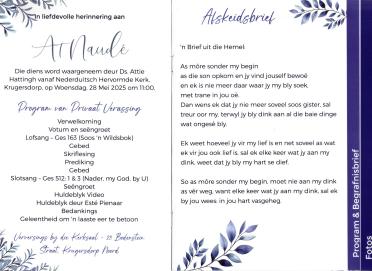 In liefdevolle herinnering aan
At Naudé
Die diens word waargeneem deur Ds. Attie
Hattingh vanaf Nederduitsch Hervormde Kerk,
Krugersdorp, op Woensdag, 28 Mei 2025 om 11:00.
Program van Privaat Verassing
Verwelkoming
Votum en seëngroet
Lofsang - Ges 163 (Soos 'n Wildsbok)
Gebed
Skriflesing
Prediking
Gebed
Slotsang - Ges 512: 1 & 3 (Nader, my God, by U)
Seëngroet
Huldeblyk Video
Huldeblyk deur Esté Pienaar
Bedankings
Geleentheid om 'n laaste eer te betoon
Verversings by die Kerksaal -
Straat, Krugersdorp Noord
Afskeidsbrief
'n Brief uit die Hemel
As môre sonder my begin
as die son opkom en jy vind jouself bewoë
en ek is nie meer daar waar jy my bly soek,
met trane in jou oë.
Dan wens ek dat jy nie meer soveel soos gister, sal
treur oor my, terwyl jy bly dink aan al die baie dinge
wat ongesê bly.
Ek weet hoeveel jy vir my lief is en net soveel as wat
ek vir jou ook lief is, sal ek elke keer wat jy aan my
dink, weet dat jy bly my hart se dief.
So as môre sonder my begin, moet nie aan my dink
as vêr weg, want elke keer wat jy aan my dink, sal ek
by jou wees: in jou hart vasgeheg.
Program & Begrafnisbrief
Fotos